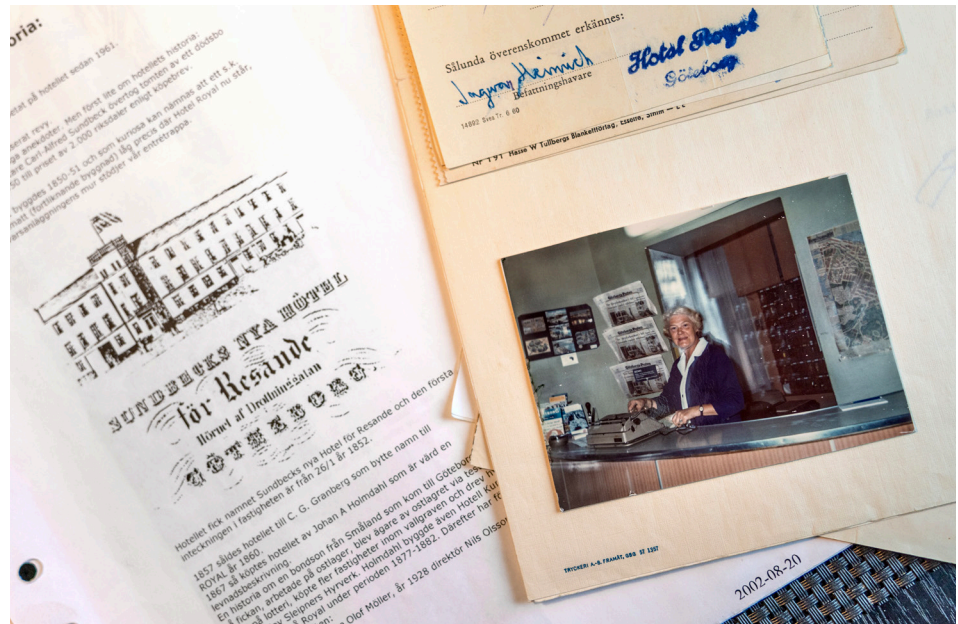 oria:
etat på hotellet sedan 1961.
serat revy.
ga anekdoter. Men först lite om hotellets historia:
are Carl-Alfred Sundbeck övertog tomten av ett dödsbo
50 till priset av 2.000 riksdaler enligt köpebrev.
byggdes 1850-51 och som kuriosa kan nämnas att ett s.k.
matt (fortliknande byggnad) låg precis där Hotel Royal nu står,
ersanläggningens mur stödjer vår entrétrappa.
SUNDBECKS NYA HÔTEL
för Resande
Hörnet af Drottninggatan
GÖTHEBORG
Hotellet fick namnet Sundbecks nya Hotel för Resande och den första
inteckningen i fastigheten är från 26/1 år 1852.
1857 såldes hotellet till C. G. Granberg som bytte namn till
ROYAL år 1860.
1867 så köptes hotellet av Johan A Holmdahl som är värd en
levnadsbeskrivning.
En historia om en bondson från Småland som kom till Götebor
fickan, arbetade på ostlager, blev ägare av ostlagret via tes
på lotteri, köpte fler fastigheter inom vallgraven och drev
Sleipners Hyrverk. Holmdahl byggde även Hotell Kun
Royal under perioden 1877-1882. Därefter har fö
en:
Olof Möller, år 1928 direktör Nils Olsson
Sålunda överenskommet erkännes:
Ingvar Heinrich
Befattningshavare
Hotel Royal
Göteborg
14802 Svea Tr. 6 60
Nr 191 Hasse W Tullbergs Blankettförlag, Esselte, Sthlm
TRYCKERI A.-B. FRAMÅT, GBG 57 1257
2002-08-20